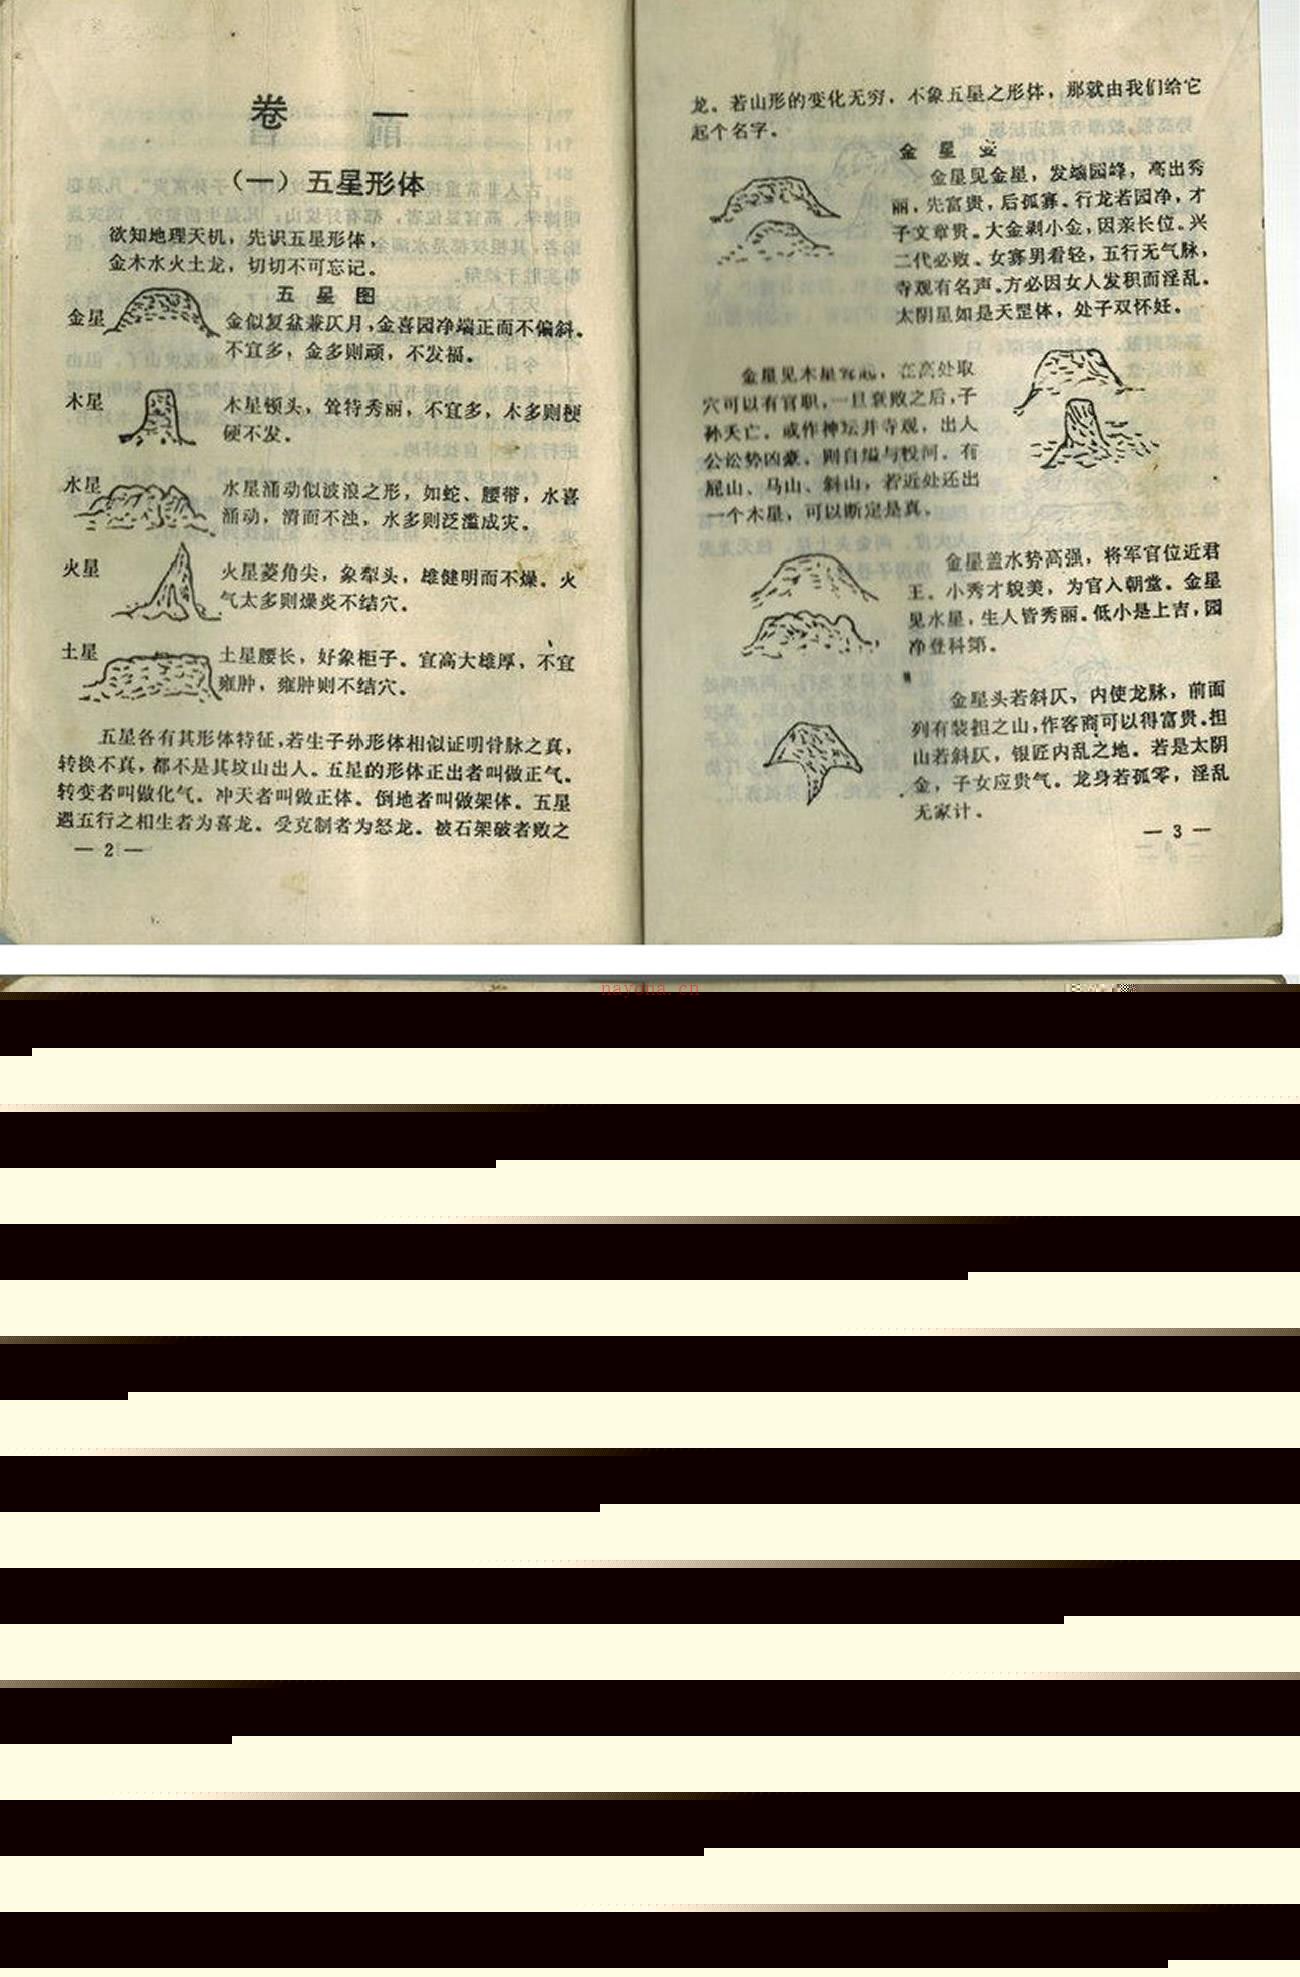 卷 一
（一）五星形体
欲知地理天机，先识五星形体，
金木水火土龙，切切不可忘记。
五 星 图
金星
金似复盆兼仄月，金喜园净端正而不偏斜。
不宜多，金多则顽，不发福。
木星
木星顿头，耸特秀丽，不宜多，木多则梗
硬不发。
水星
水星涌动似波浪之形，如蛇、腰带，水喜
涌动，清而不浊，水多则泛滥成灾。
火星
火星菱角尖，象犁头，雄健明而不燥。火
气太多则燥炎不结穴。
土星
土星腰长，好象柜子。宜高大雄厚，不宜
雍肿，雍肿则不结穴。
五星各有其形体特征，若生子孙形体相似证明骨脉之真，
转换不真，都不是其坟山出人。五星的形体正出者叫做正气。
转变者叫做化气。冲天者叫做正体。倒地者叫做架体。五星
遇五行之相生者为喜龙。受克制者为怒龙。被石架破者败之
— 2 —
龙。若山形的变化无穷，不象五星之形体，那就由我们给它
起个名字。
金 星 变
金星见金星，发端园峰，高出秀
丽，先富贵，后孤寡。行龙若园净，才
子文章贵。大金剥小金，因亲长位。兴
二代必败。女寡男看轻，五行无气脉，
寺观有名声。方必因女人发积而淫乱。
太阴星如是天罡体，处子双怀妊。
金星见木星耸起，在高处取
穴可以有官职，一旦衰败之后，子
孙夭亡。或作神坛并寺观，出人
公讼势凶豪。则自缢与投河。有
屁山、马山、斜山，若近处还出
一个木星，可以断定是真。
金星盖水势高强，将军官位近君
王。小秀才貌美，为官入朝堂。金星
见水星，生人皆秀丽。低小是上吉，园
净登科第。
金星头若斜仄，内使龙脉，前面
列有装担之山，作客商可以得富贵。担
山若斜仄，银匠内乱之地。若是太阴
金，子女应贵气。龙身若孤零，淫乱
无家计。
— 3 —
nayona.cn